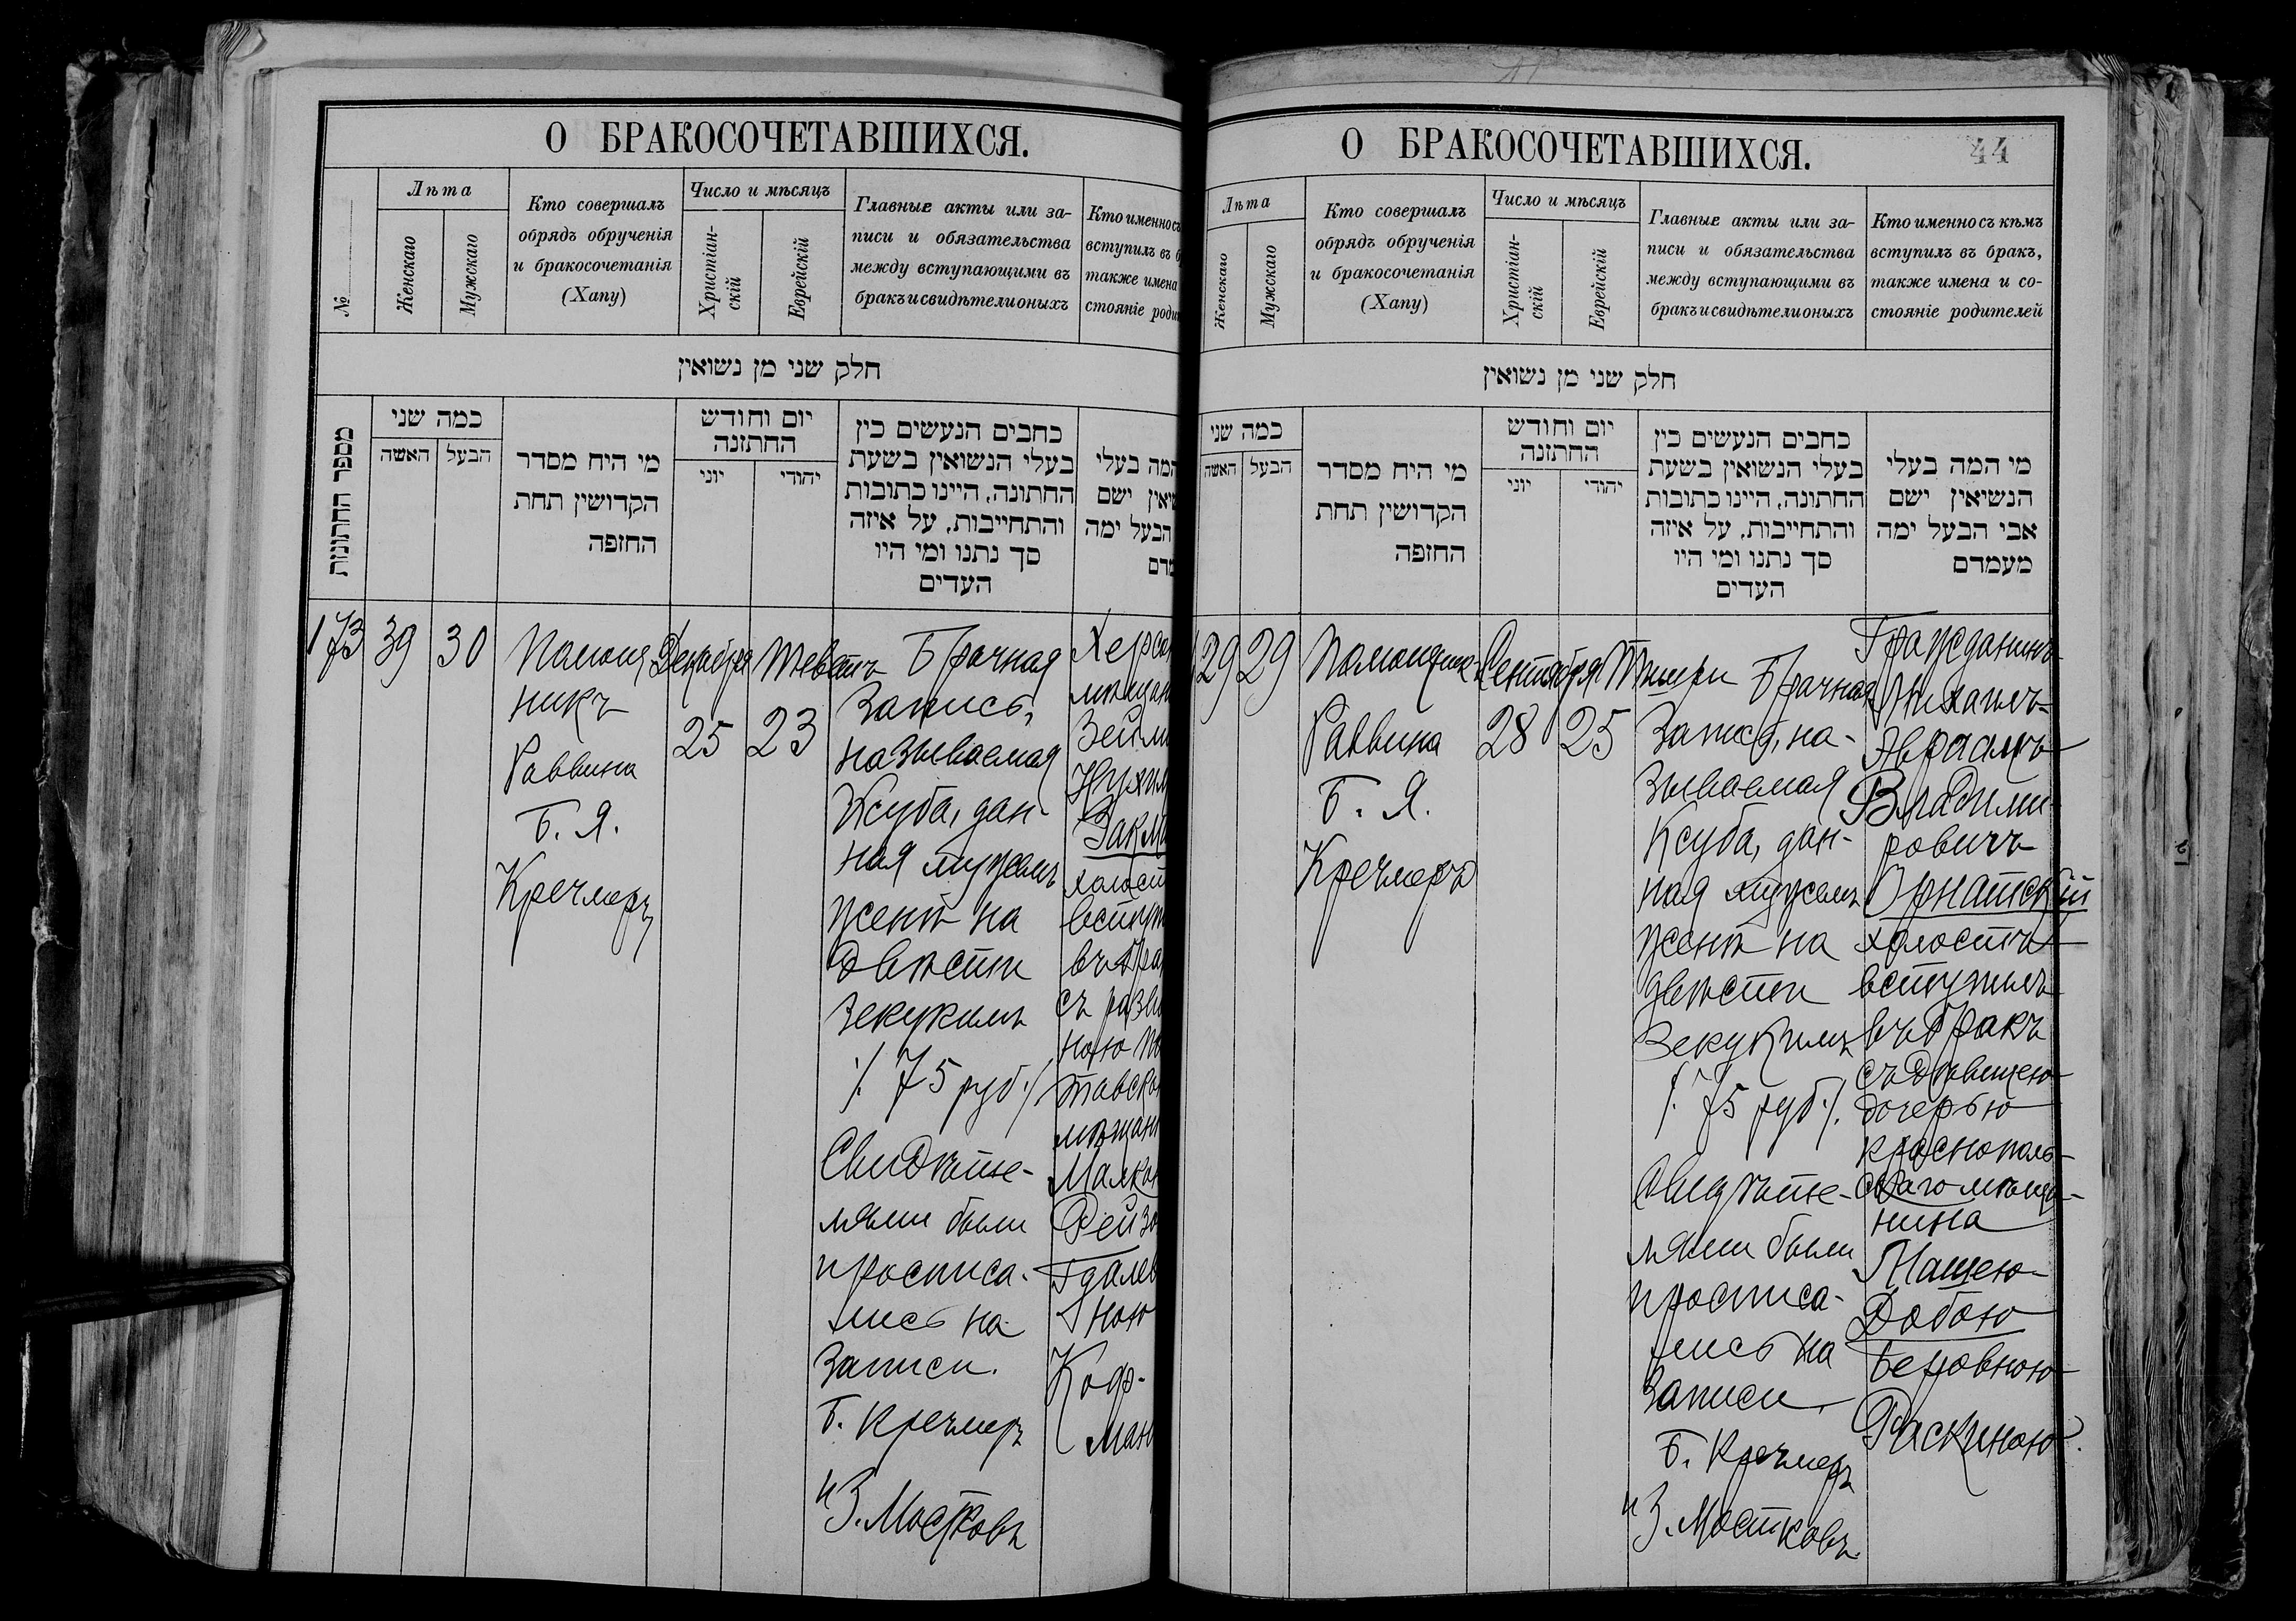 О БРАКОСОЧЕТАВШИХСЯ.
№
Лѣта
Женскаго
Мужскаго
Кто совершалъ
обрядъ обрученія
и бракосочетанія
(Хапу)
Число и мѣсяцъ
Христіан-
скій
Еврейскій
Главные акты или за-
писи и обязательства
между вступающими въ
бракъ и свидѣтели оныхъ
Кто именно съ
вступилъ въ б
также имена
стояніе роди
חלק שני מן נשואין
מספר החתונות
כמה שני
האשה
הבעל
מי היח מסדר
הקדושין תחת
החזפה
יום וחודש
החתזנה
יוני
יהודי
כחבים הנעשים כין
בעלי הנשואין בשעת
החתונה, היינו כתובות
והתחייבות, על איזה
סך נתנו ומי היו
העדים
המה בעלי
שואין ישם
הבעל ימה
מדם
173
39
30
Помощ
никъ
Раввина
Б. Я.
Кречмеръ
Декабря
25
Теветъ
23
Брачная
Запись,
называемая
Ксуба, дан-
ная мужемъ
женѣ на
двѣсти
Зекукимъ
/. 75 руб./
Свидѣте-
лями были
просписа-
лись на
Записи.
Б. Кречмеръ
и З. Мостковъ
Херсон
мѣщан
Зейли
Нухим
Закл
холост
вступи
въ бра
съ разве
ною По
тавско
мѣщан
Малкою
Фейзо
Гдалев
ною
Коф-
ман
О БРАКОСОЧЕТАВШИХСЯ.
44
Лѣта
Женскаго
Мужскаго
Кто совершалъ
обрядъ обрученія
и бракосочетанія
(Хапу)
Число и мѣсяцъ
Христіан-
скій
Еврейскій
Главные акты или за-
писи и обязательства
между вступающими въ
бракъ и свидѣтели оныхъ
Кто именно съ кѣмъ
вступилъ въ бракъ,
также имена и со-
стояніе родителей
חלק שני מן נשואין
כמה שני
האשה
הבעל
מי היח מסדר
הקדושין תחת
החזפה
יום וחודש
החתזנה
יוני
יהודי
כחבים הנעשים כין
בעלי הנשואין בשעת
החתונה, היינו כתובות
והתחייבות, על איזה
סך נתנו ומי היו
העדים
מי המה בעלי
הנשיאין ישם
אבי הבעל ימה
מעמדם
29
29
Помощникъ
Раввина
Б. Я.
Кречмеръ
Сентября
28
Тишри
25
Брачная
Запись, на-
зываемая
Ксуба, дан-
ная мужемъ
женѣ на
двѣсти
Зекукимъ
/. 75 руб./.
Свидѣте-
лями были
просписа-
лись на
Записи.
Б. Кречмеръ
и З. Мостковъ.
Гражданинъ
Михаилъ-
Авраамъ
Владими-
ровичъ
Орнатскій
холостъ
вступилъ
въ бракъ
съ дѣвицею
дочерью
краснополь-
скаго мѣща-
нина
Машею-
Добою
Беновною
Раскиною.